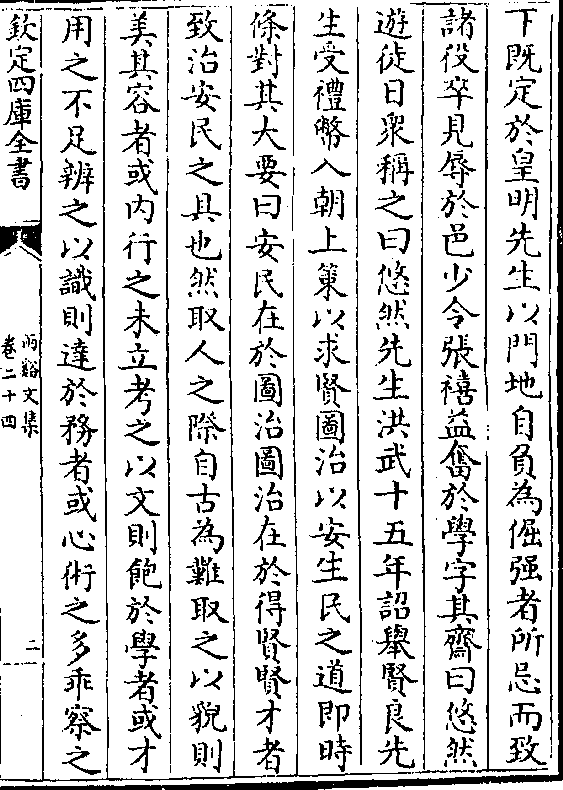 下既定於皇明先生以門地自負為倔强者所忌而致
諸役卒見辱於邑少令張禧益奮於學字其齋曰悠然
遊徒日衆稱之曰悠然先生洪武十五年詔舉賢良先
生受禮幣入朝上策以求賢圖治以安生民之道即時
條對其大要曰安民在於圖治圖治在於得賢賢才者
致治安民之具也然取人之際自古為難取之以貌則
美其容者或内行之未立考之以文則飽於學者或才
用之不足辨之以識則達於務者或心術之多乖察之
欽定四庫全書
兩谿文集
卷二十四
二